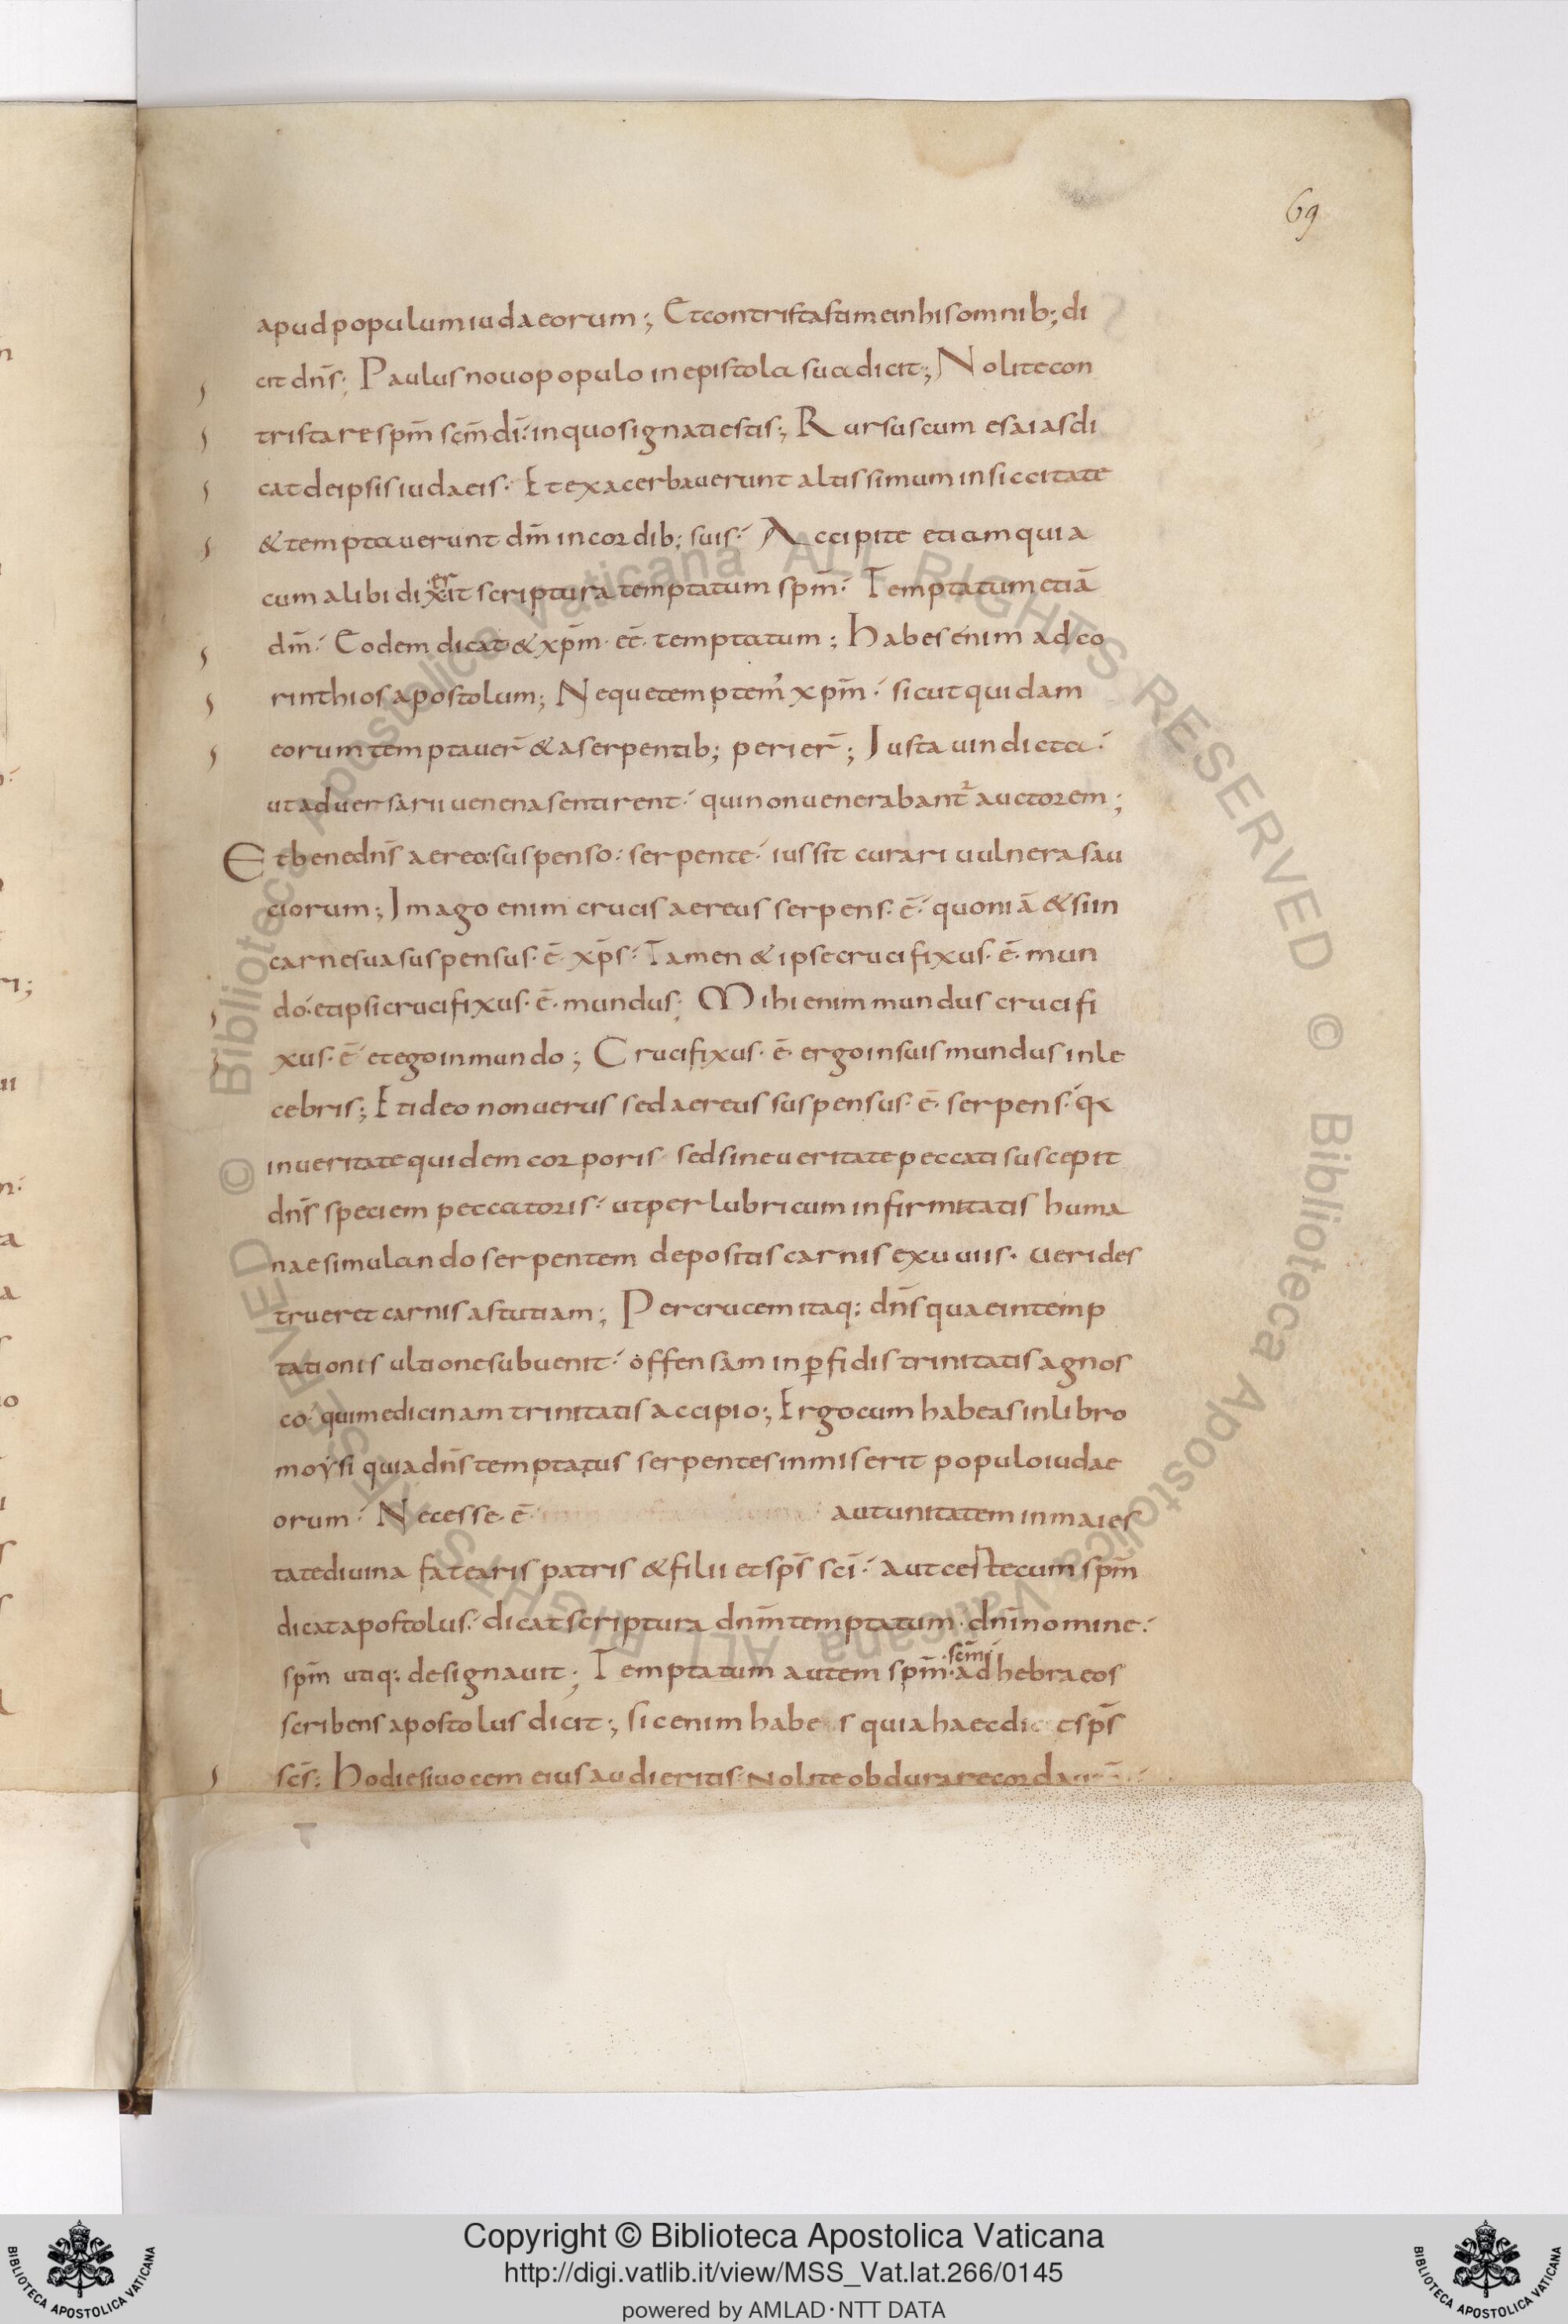 69
apud populum iudaeorum; Et contristastim ein his omnib; di
cit dn̄s; Paulus novo populo in epistola sua dicit; Nolite con
tristare spm̄ scm̄ di̅: in quo signati estis; Rursus cum esaias di
cat de ipsis iudaeis· Et exacerbaverunt altissimum in siccitate
& temptaverunt dm̄ in cordib; suis· Accipite etiam quia
cum alibi dixerit scriptura temptatum spm̄· Temptatum etiā
dm̄· Eodem dicat & xpm̄· eē· temptatum; Habes enim ad co
rinthios apostolum; Neque temptem᾽ xpm̄· sicut quidam
eorum temptaver̄ & a serpentib; perier̄; Iusta vindicta·
ut adversarii venena sentirent· qui non venerabant᷑ auctorem;
Et bene dn̄s aereo: suspenso: serpente· iussit curari vulnera sau
ciorum; Imago enim crucis aereus serpens· ē· quoniā & si in
carne sua suspensus· ē· xp̄s· Tamen & ipse crucifixus· ē· mun
do· et ipsi crucifixus· ē· mundus; Mihi enim mundus crucifi
xus· ē· et ego in mundo; Crucifixus· ē· ergo in suis mundus inle
cebris; Et ideo non verus sed aereus suspensus· ē· serpens·
in veritate quidem corporis· sed sine veritate peccati suscepit
dn̄s speciem peccatoris· ut per lubricum infirmitatis huma
nae simulando serpentem depositis carnis exuviis· veri des
trueret carnis astutiam; Per crucem itaq: dn̄s quae in temp
tationis ultione subvenit· offensam in ꝑfidis trinitatis agnos
co· qui medicinam trinitatis accipio; Ergo cum habeas in libro
moysi quia dn̄s temptatus serpentes inmiserit populo iudae
orum· Necesse· ē· aut unitatem in maies
tate divina fatearis patris & filii et sp̄s sci̅· aut certe cum spm̄
dicat apostolus· dicat scriptura dnm̄ temptatum· dni̅ nomine·
spm̄ utiq: designavit; Temptatum autem spm̄· scm̄ ad hebraeos
scribens apostolus dicit; sic enim habe s quia haec di t sp̄s
sc̄s; Hodie si vocem eius audieritis· Nolite obdurare corda
Copyright © Biblioteca Apostolica Vaticana
http://digi.vatlib.it/view/MSS_Vat.lat.266/0145
powered by AMLAD·NTT DATA
BIBLIOTECA APOSTOLICA VATICANA
BIBLIOTECA APOSTOLICA VATICANA
© Biblioteca Apostolica Vaticana ALL RIGHTS RESERVED © Biblioteca Apostolica Vaticana ALL RIGHTS RESERVED